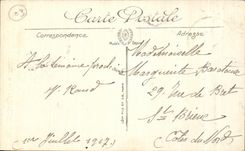 Carte Postale
Correspondance
Adresse
Mademoiselle
Marguerite
29 Rue de Bret
St Brieuc
Côtes du Nord
A la semaine prochaine
1er Juillet 1917